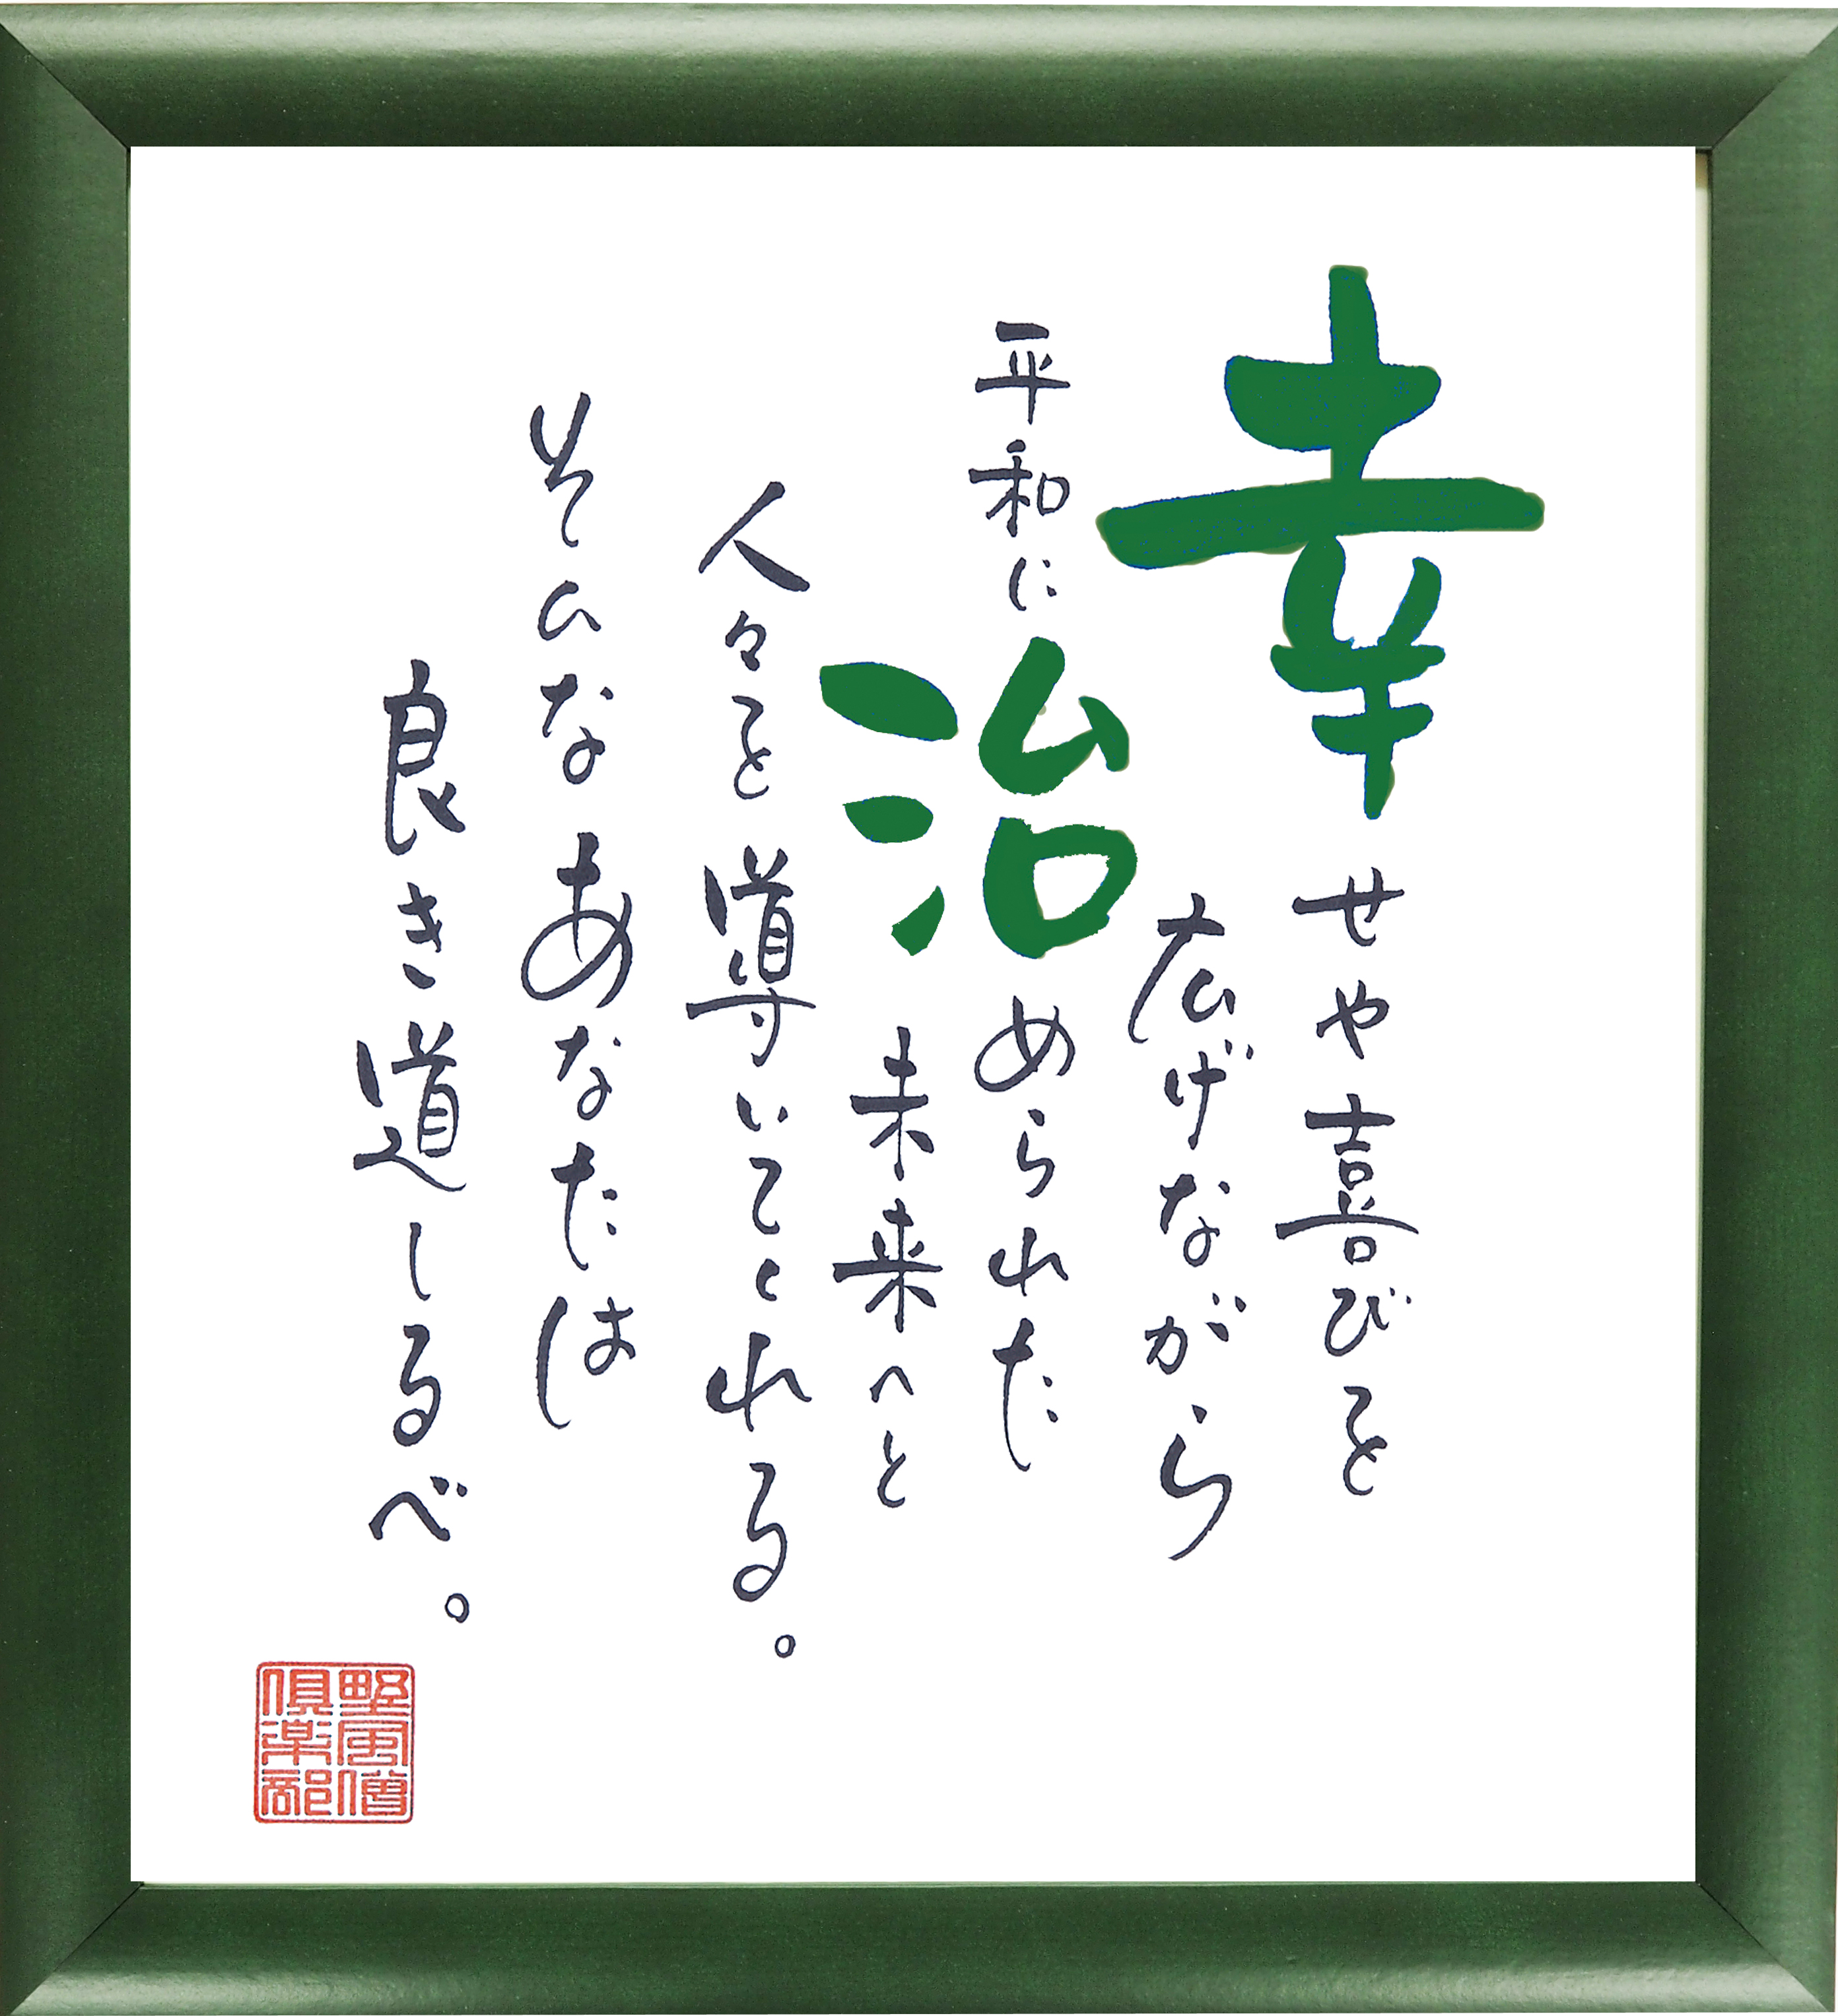 幸せや喜びを
広げながら
平和に治められた
未来へと
人々を導いてくれる。
そんなあなたは
良き道しるべ。
野風僧
倶楽部